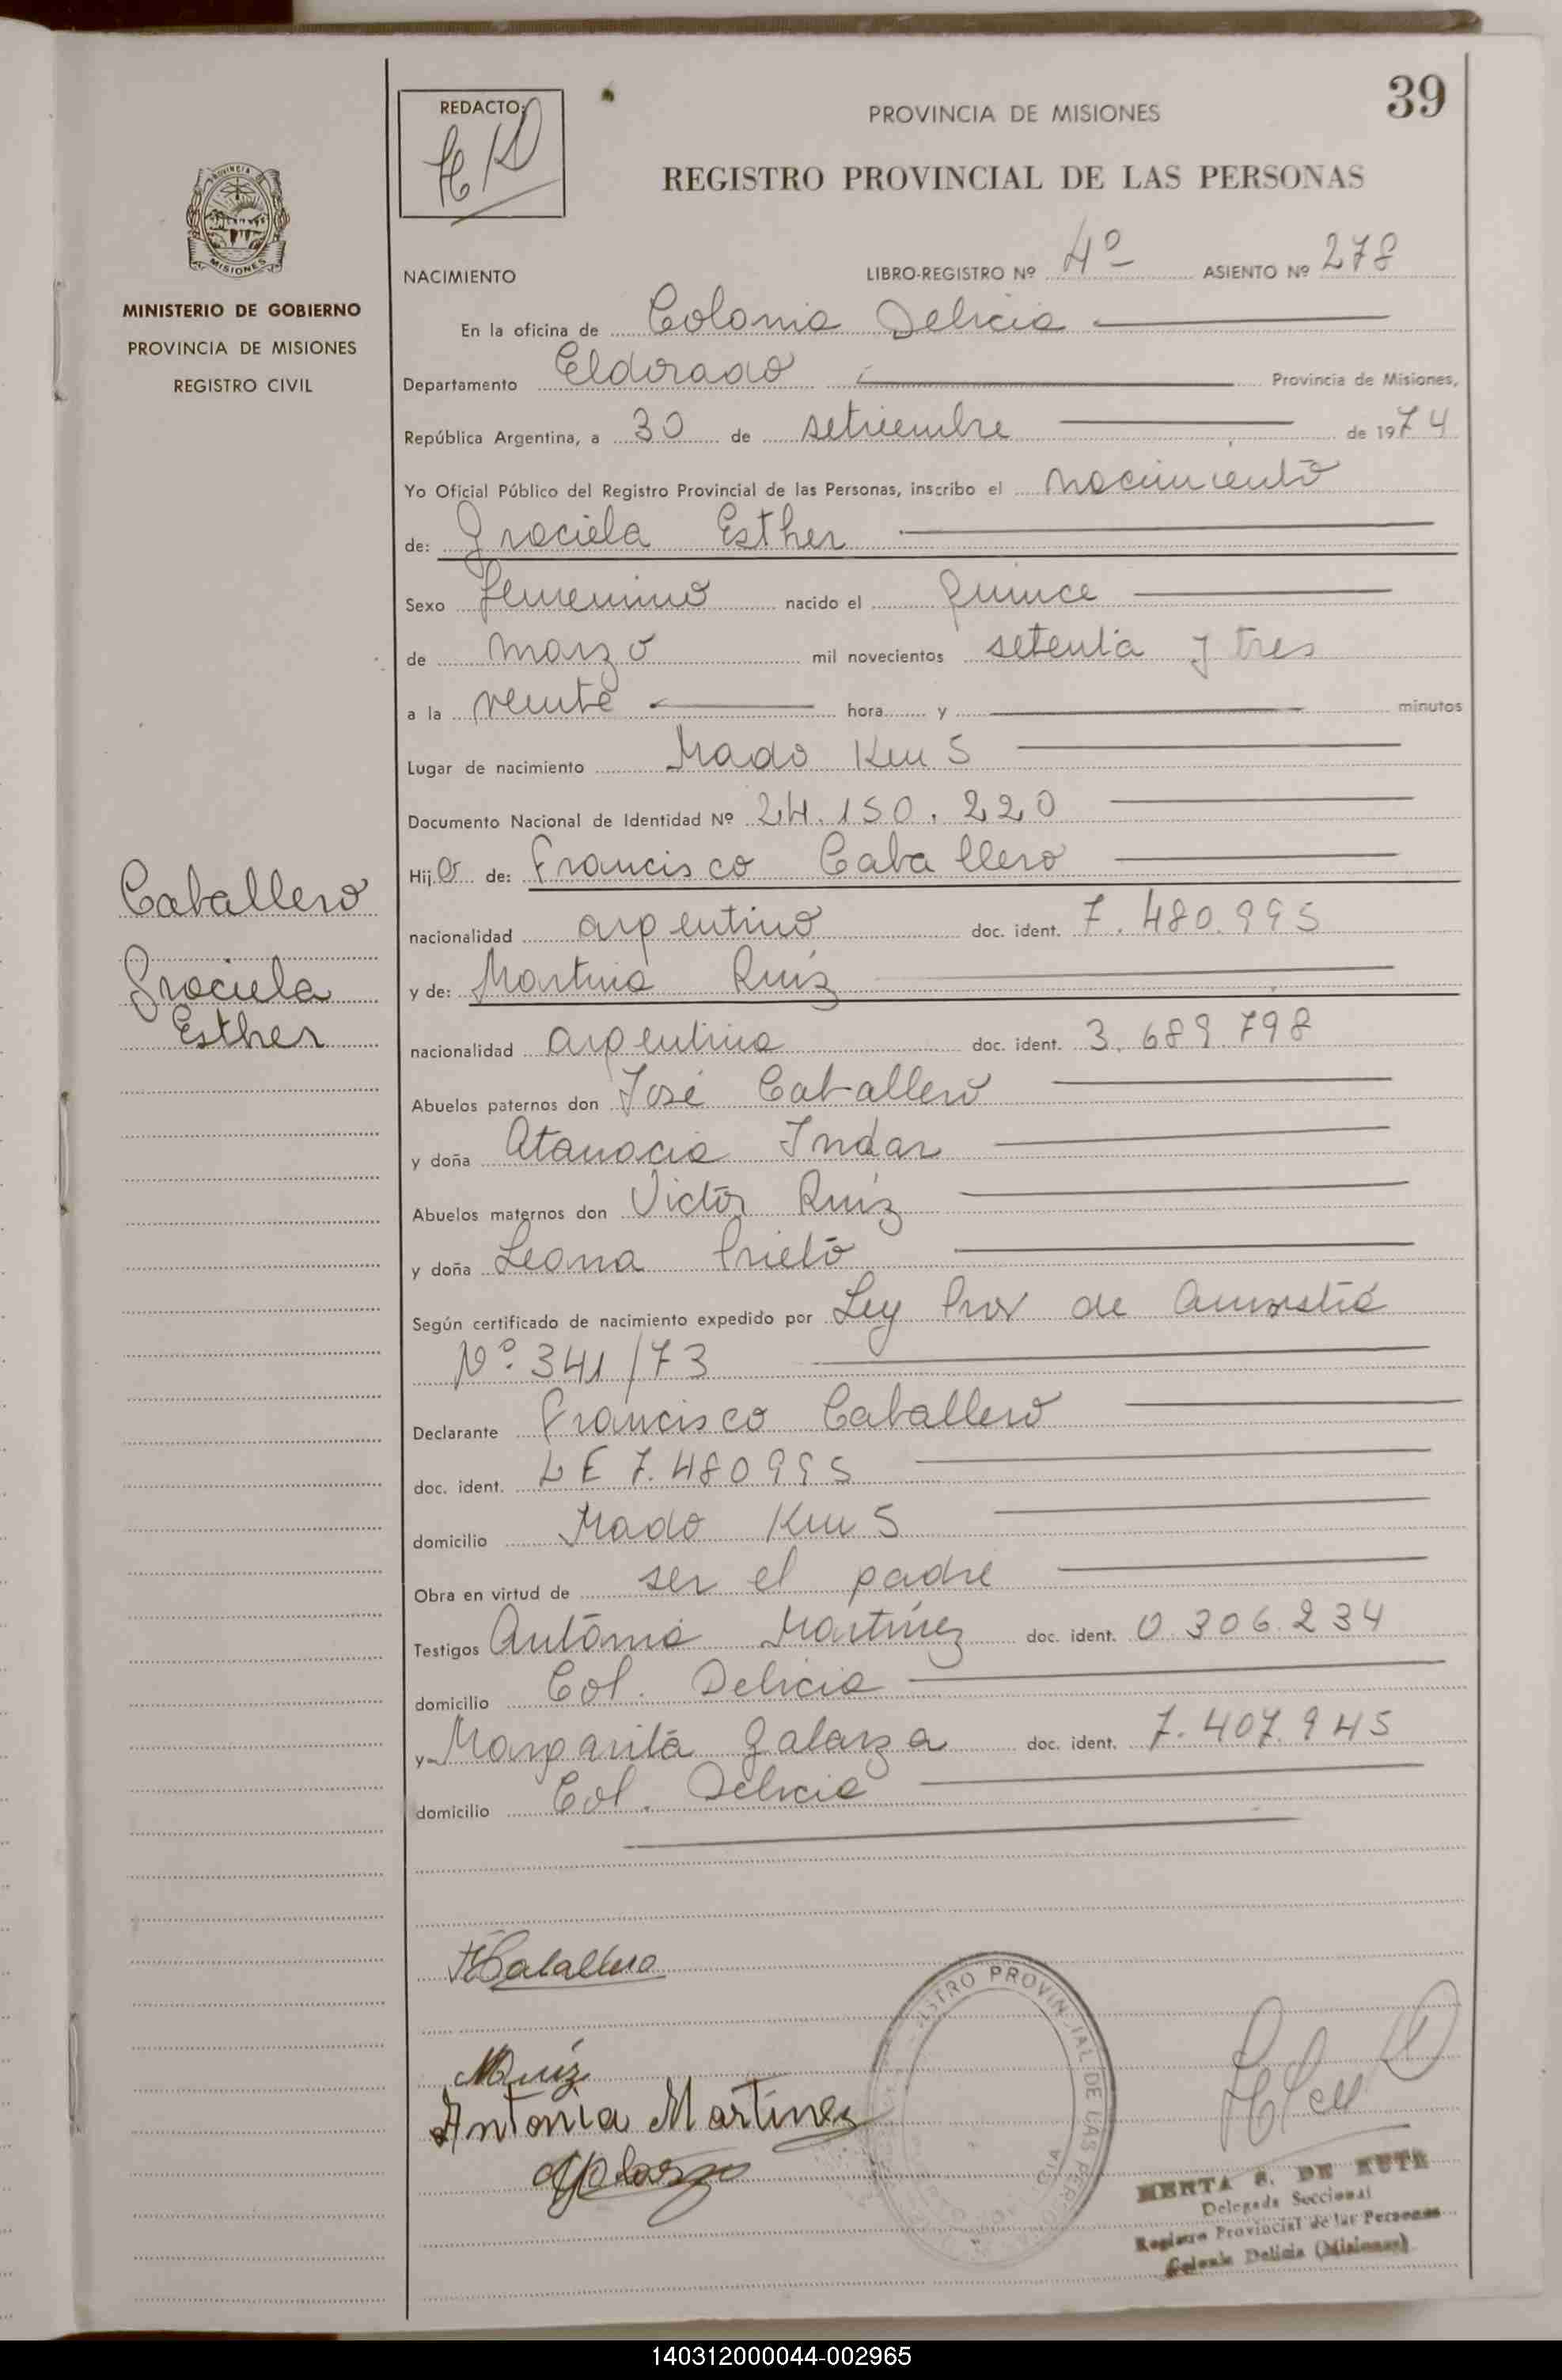 39
REDACTO:
PROVINCIA DE MISIONES
REGISTRO PROVINCIAL DE LAS PERSONAS
PROVINCIA
MISIONES
MINISTERIO DE GOBIERNO
PROVINCIA DE MISIONES
REGISTRO CIVIL
NACIMIENTO LIBRO-REGISTRO Nº 4º ASIENTO Nº 278
En la oficina de Colonia Delicia
Departamento Eldorado Provincia de Misiones,
República Argentina, a 30 de setiembre de 1974
Yo Oficial Público del Registro Provincial de las Personas, inscribo el nacimiento
de: Graciela Esther
Sexo femenino nacido el quince
de marzo mil novecientos setenta y tres
a la veinte hora y minutos
Lugar de nacimiento Mado Km 5
Documento Nacional de Identidad Nº 24.150.220
Hija de: Francisco Caballero
Caballero
Graciela
Esther
nacionalidad argentino doc. ident. 7.480.995
y de: Martina Ruiz
nacionalidad argentina doc. ident. 3.689.798
Abuelos paternos don José Caballero
y doña Atanacia Indar
Abuelos maternos don Victor Ruiz
y doña Leona Prieto
Según certificado de nacimiento expedido por Ley Prov de Amnistia
Nº 341/73
Declarante Francisco Caballero
doc. ident. L E 7.480995
domicilio Mado Km 5
Obra en virtud de ser el padre
Testigos Antonia Martinez doc. ident. 0.306.234
domicilio Col. Delicia
y Margarita Galarza doc. ident. 7.407.945
domicilio Col. Delicia
FCaballero
MRuiz
Antonia Martinez
REGISTRO PROVINCIAL DE LAS PERSONAS
HERTA S. DE KUTE
Delegada Seccional
Registro Provincial de las Personas
Colonia Delicia (Misiones)
140312000044-002965